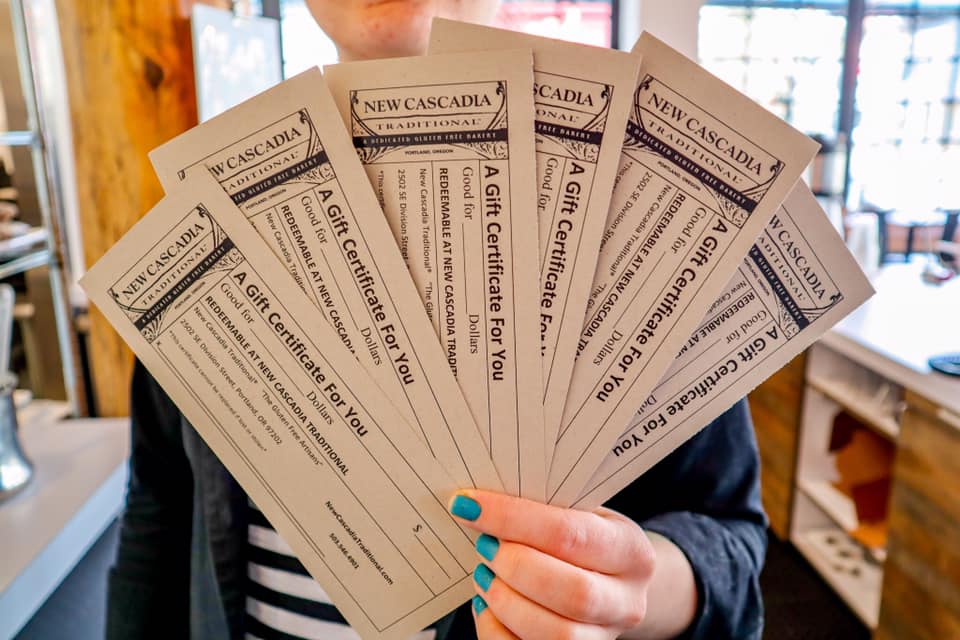 NEW CASCADIA
TRADITIONAL
A Gift Certificate For You
Good for Dollars
REDEEMABLE AT NEW CASCADIA TRADITIONAL
New Cascadia Traditional® "The Gluten Free Artisans"
2502 SE Division Street, Portland, OR 97202
*This certificate cannot be redeemed if lost or stolen*
X
$
NewCascadiaTraditional.com
503.546.4901
CASCADIA
TRADITIONAL
GLUTEN FREE BAKERY
PORTLAND, OREGON
A Gift Certificate For You
Good for Dollars
REDEEMABLE AT NEW CASCADIA
New Cascadia
NEW CASCADIA
TRADITIONAL
A DEDICATED GLUTEN FREE BAKERY
PORTLAND, OREGON
A Gift Certificate For You
Good for Dollars
REDEEMABLE AT NEW CASCADIA
New Cascadia Traditional® "The
2502 SE Division Street
*This
CASCADIA
FREE BAKERY
A Gift Certificate For
Good for
NEW CASCADIA
TRADITIONAL
A DEDICATED GLUTEN FREE BAKERY
PORTLAND, OREGON
A Gift Certificate For You
Good for Dollars
REDEEMABLE AT NEW CASCADIA
New Cascadia Traditional®
2502 SE Division Street
*This
NEW CASCADIA
TRADITIONAL
A DEDICATED GLUTEN FREE BAKERY
PORTLAND, OREGON
A Gift Certificate For You
Good for
REDEEMABLE AT